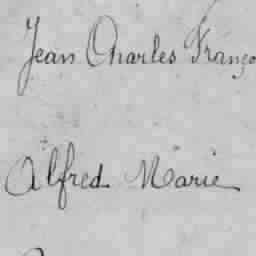 Jean Charles Franço
Alfred Marie